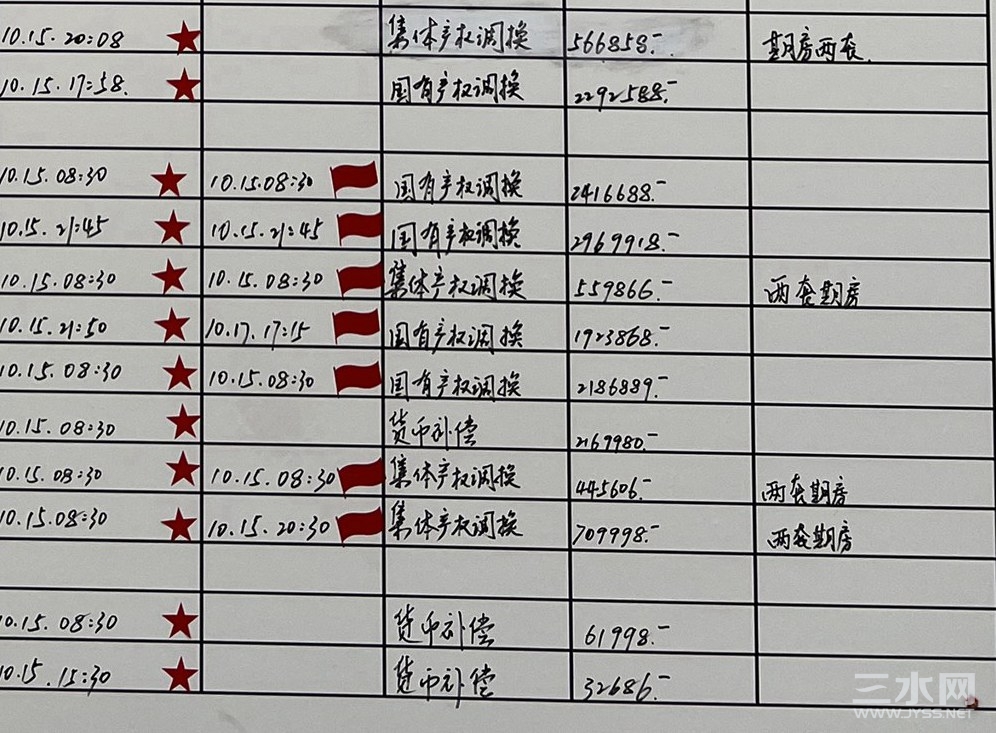 10.15. 20:08 集体产权调换 566858.- 期房两套.
10.15. 17:58. 国有产权调换 2292588.-
10.15. 08:30 10.15.08:30 国有产权调换 2416688.-
10.15. 21:45 10.15.21:45 国有产权调换 2969918.-
10.15.08:30 10.15.08:30 集体产权调换 559866.- 两套期房
10.15. 21:50 10.17. 17:15 国有产权调换 1923868.-
10.15. 08:30 10.15.08:30 国有产权调换 2186889.-
10.15. 08:30 货币补偿 2169980.-
10.15. 08:30 10.15.08:30 集体产权调换 445606.- 两套期房
10.15.08:30 10.15. 20:30 集体产权调换 709998.- 两套期房
10.15. 08:30 货币补偿 61998.-
10.15. 15:30 货币补偿 32686.-
三水网
WWW.JYSS.NET